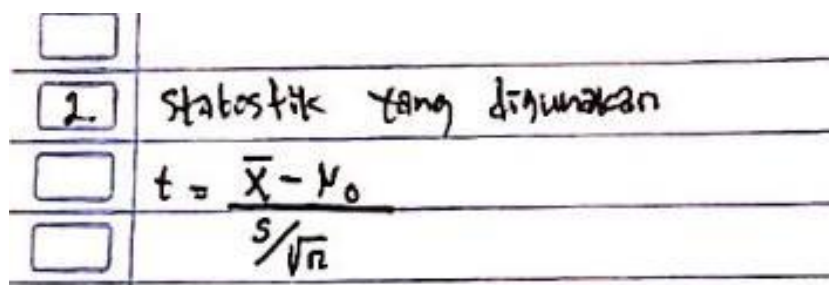 2. Statostik yang digunakan
t = x̄ - μ₀
s/√n